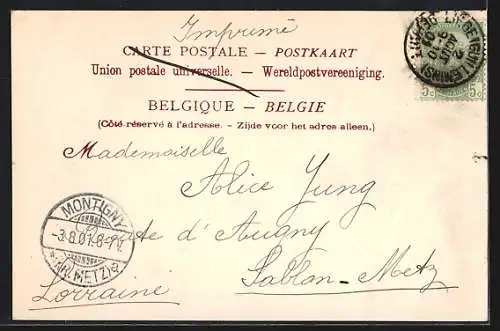 Imprimé
CARTE POSTALE — POSTKAART
Union postale universelle. — Wereldpostvereeniging.
BELGIQUE — BELGIE
(Côté réservé à l'adresse. - Zijde voor het adres alleen.)
Mademoiselle
Alice Jung
d'Augny
Sablon-Metz
Lorraine
MONTIGNY
-3.8.01.6-7V.
(KR.METZ)
5c 5c